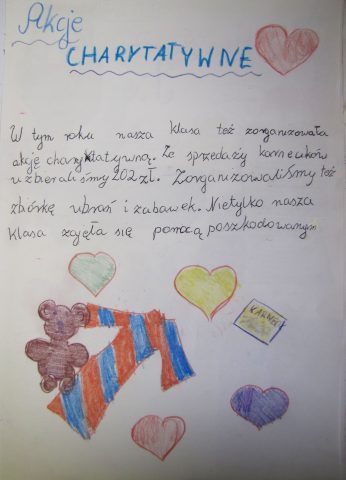 Akcje
CHARYTATYWNE
W tym roku nasza klasa też zorganizowała
akcję charytatywną. Ze sprzedaży karnecików
uzbieraliśmy 202 zł. Zorganizowaliśmy też
zbiórkę ubrań i zabawek. Nietylko nasza
klasa zajęła się pomocą poszkodowanym